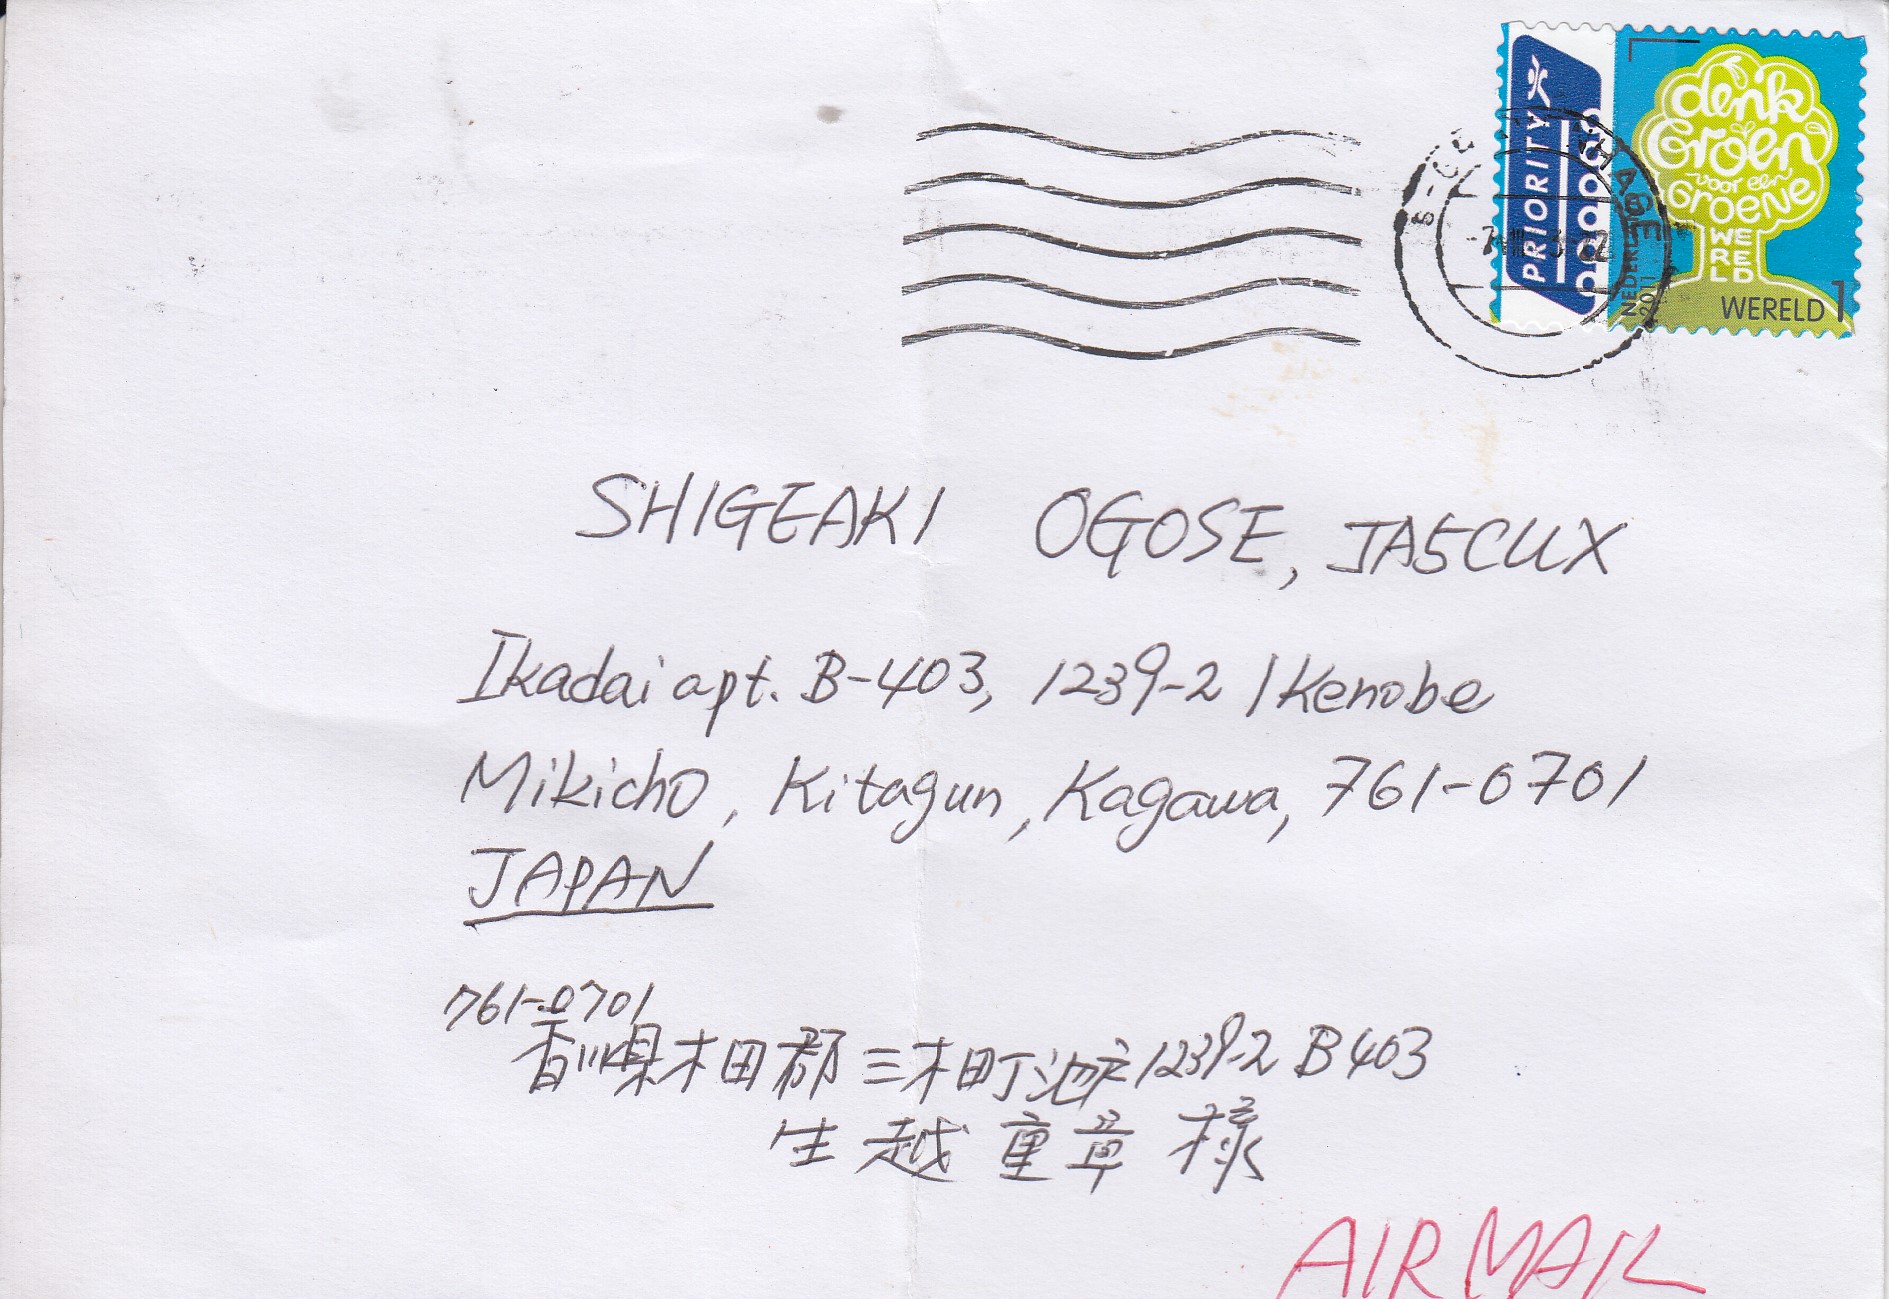 PRIORITY
denk
Groen
voor een
GROENE
WE
RE
LD
NEDERLAND
2011
WERELD 1
SHIGEAKI OGOSE, JA5CUX
Ikadai apt. B-403, 1239-2 Ikenobe
Mikicho, Kitagun, Kagawa, 761-0701
JAPAN
761-0701
香川県木田郡三木町池戸1239-2 B403
生越重章様
AIRMAIL